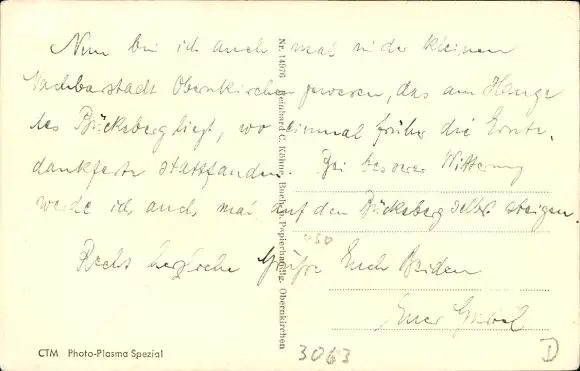 Nun bin ich auch mal in der kleinen
Nachbarstadt Obernkirchen gewesen, das am Hange
des Bückeberg liegt, wo einmal früher die Ernte-
dankfeste stattfanden. Bei besserer Witterung
werde ich auch mal auf den Bückeberg selbst steigen.
Recht herzliche Grüße Euch Beiden
Euer
Nr. 14976 Reinhard C. Köhne, Buch- u. Papierhandlg. Obernkirchen
CTM Photo-Plasma Spezial
3063
D